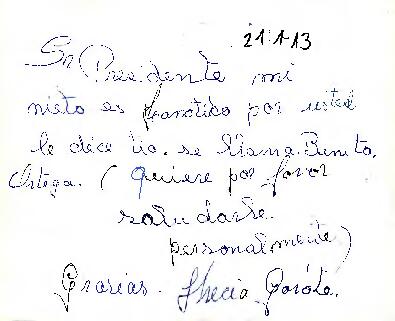 21-1-13
Sr Presidente mi
nieto es fanatico por usted
le dice tio. se llama Benito.
Ortega. ( quiere por favor
saludarle
personalmente)
Gracias.